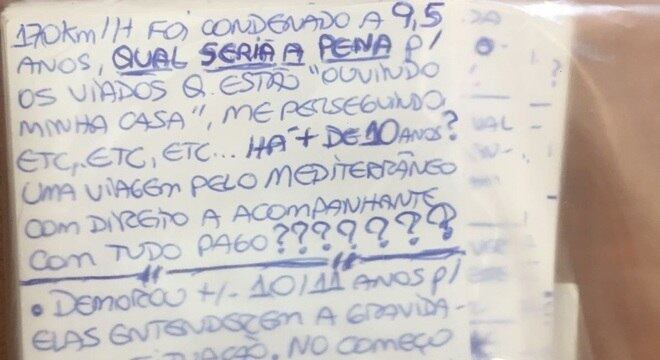 170KM/H FOI CONDENADO A 9,5
ANOS, QUAL SERIA A PENA P/
OS VIADOS Q. ESTÃO "OUVINDO
MINHA CASA", ME PERSEGUINDO,
ETC, ETC, ETC... HÁ + DE 10 ANOS?
UMA VIAGEM PELO MEDITERRÂNEO
COM DIREITO A ACOMPANHANTE
COM TUDO PAGO???????
• DEMOROU +/- 10/11 ANOS P/
ELAS ENTENDEREM A GRAVIDA-
NO COMEÇO